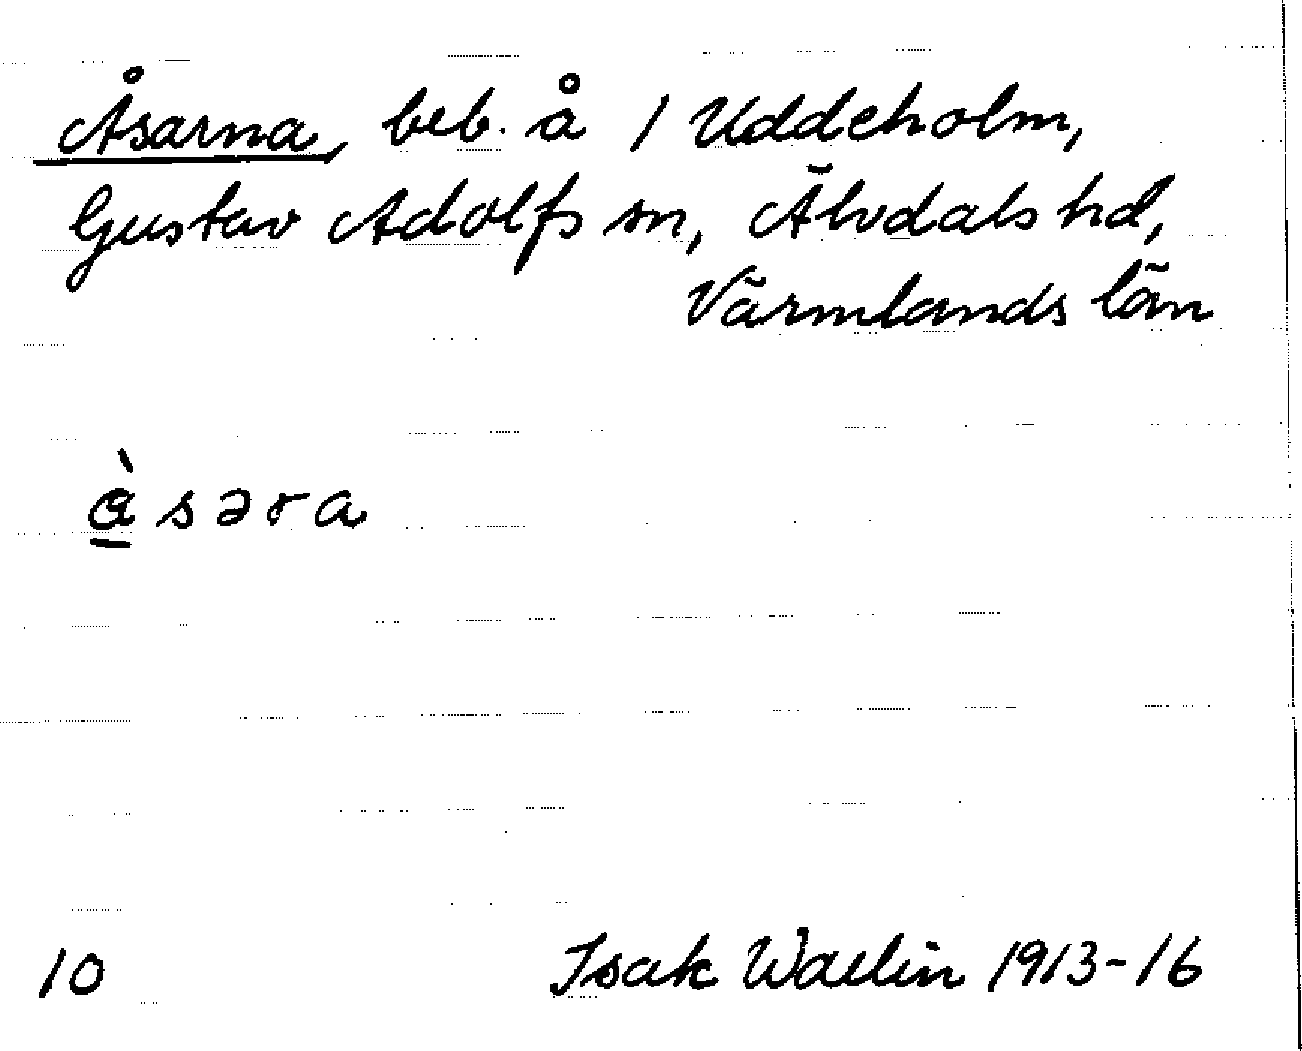 Åsarna, beb. å 1 Uddeholm,
Gustav Adolfs sn, Älvdals hd,
Värmlands län
å̀səra
10
Isak Wallin 1913-16